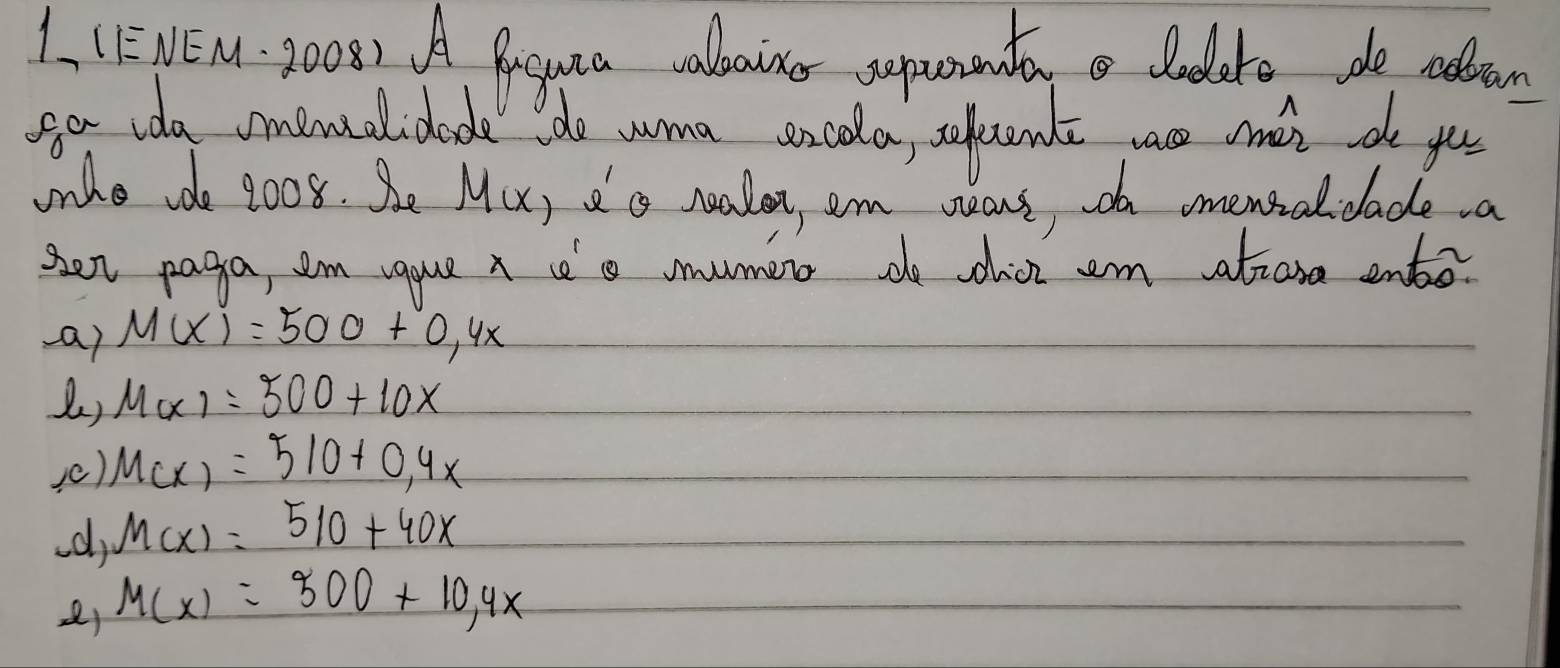 1_ (ENEM-2008) A figura abaixo representa o boleto de cobran_
ça da mensalidade de uma escola, referente ao mês de ju=
nho de 2008. Se M(x) é o valor, em reais, da mensalidade a
ser paga, em que x é o número de dias em atraso entõ.
a) M(X) = 500 + 0,4x
b) M(x) = 500 + 10x
c) M(x) = 510 + 0,4x
d) M(x) = 510 + 40x
e) M(x) = 500 + 10,4x